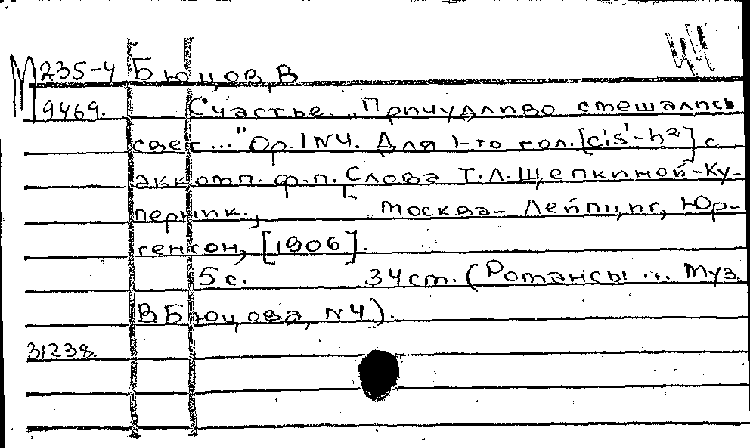 М 235-4 Бюцов, В
9469. Счастье. „Причудливо смешались
свет..." Ор. 1 N4. Для 1-го гол. [cis¹-h²] с
аккомп. ф.п. Слова Т.Л. Щепкиной-Ку-
перник., Москва - Лейпциг, Юр-
генсон, [1906].
5 с. 34 ст. (Романсы ... муз.
В Бюцова, N4).
31238.